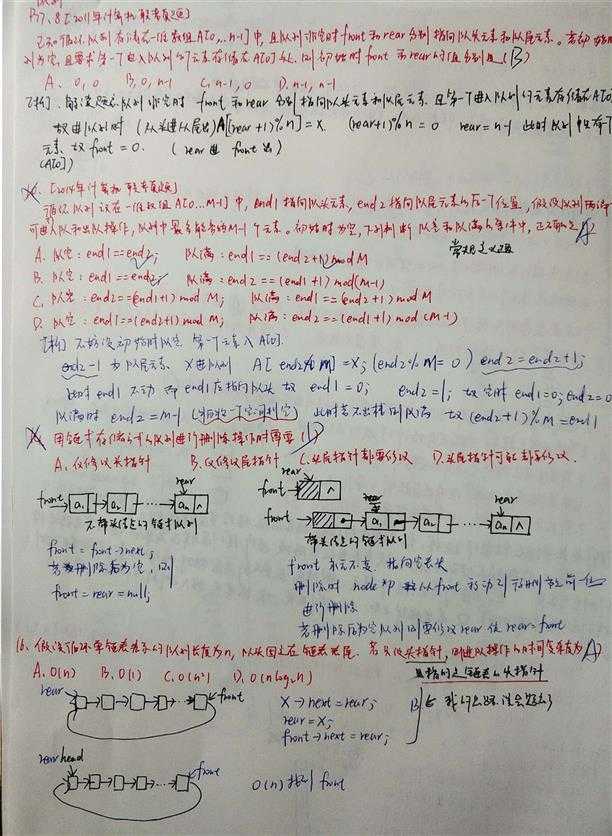 P17、8【2011年计算机联考真题】
已知循环队列存储在一维数组A[0...n-1]中，且队列非空时front和rear分别指向队头元素和队尾元素。若初始时
列为空，且要求第一个进入队列的元素存储在A[0]处，则初始时front和rear的值分别是(B)
A. 0, 0 B, 0, n-1 C, n-1, 0 D. n-1, n-1
队列非空时 front和rear分别指向队头元素和队尾元素. 且第一个进入队列的元素存储在A[0]
故进队列时 A[(rear+1)%n]=X. (rear+1)%n=0 rear=n-1 此时队列中只有一个
元素, 故front=0. (rear进 front出)
(A[0])
【2014年计算机联考真题】
循环队列放在一维数组A[0...M-1]中, end1指向队头元素, end2指向队尾元素的后一个位置, 假设队列两端
可进入队和出队操作, 队列中最多能容纳M-1个元素。初始时为空, 下列判断队空和队满的条件中, 正确的是 A
A. 队空: end1==end2; 队满: end1==(end2+1)mod M
B. 队空: end1==end2; 队满: end2==(end1+1)mod(M-1)
C. 队空: end2==(end1+1) mod M; 队满: end1==(end2+1) mod M
D. 队空: end1==(end2+1) mod M; 队满: end2==(end1+1) mod (M-1)
初始时队空 第一个元素入A[0].
end2-1为队尾元素. X进队列 A[end2%M]=X; (end2%M=0) end2=end2+1;
此时end1不动 即end1应指向队头 故end1=0; end2=1; 故空时end1=0; end2=0
队满时 end2=M-1 (牺牲一个空间判空) 此时 队满 故(end2+1)%M=end1
用链式存储方式的队列进行删除操作时需要(D)
A. 仅修改头指针 B. 仅修改尾指针 C. 头尾指针都要修改 D. 头尾指针可能都要修改.
rear
front
rear
front a1 a2 ... an ∧
不带头结点的链式队列
rear
front a1 a2 ... an ∧
带头结点的链式队列
front=front->next;
若删除后为空, 则
front=rear=null;
front永远不变 指向空表头
删除时 node *p 从front移动到 前一位
进行删除
若删除后为空队列 则要修改rear 使rear=front
16. 假设循环单链表表示的队列长度为n, 队头固定在链表表尾. 若只设头指针, 则进队操作的时间复杂度为 A)
A. O(n) B. O(1) C. O(n²) D. O(nlog₂n)
且指的是链表的头指针
rear front
X->next=rear;
rear=X;
front->next=rear;
B
rear head front
O(n)找到front